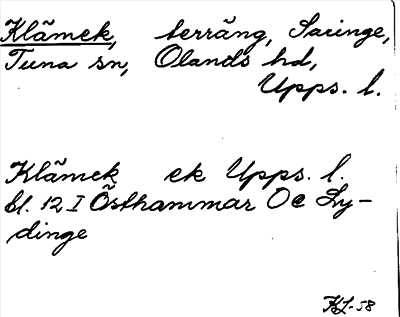 Klämek, terräng, Saringe,
Tuna sn, Olands hd,
Upps. l.
Klämek ek Upps. l.
bl. 12 I Östhammar Oc Ly-
dinge
KL-58